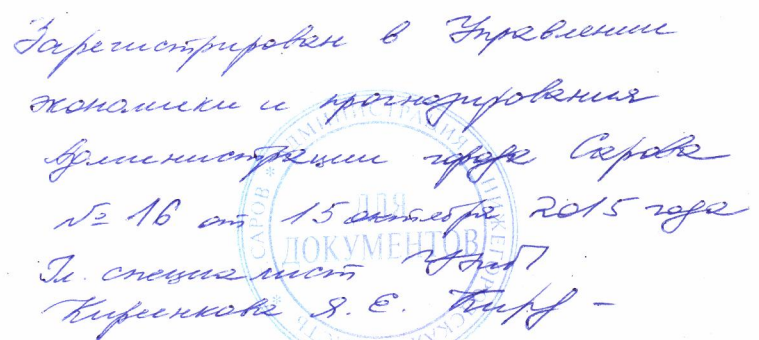 Зарегистрирован в Управлении
экономики и прогнозирования
Администрации города Сарова
№ 16 от 15 октября 2015 года
Гл. специалист УЭиП
Я. Е.
АДМИНИСТРАЦИЯ
САРОВ
ДЛЯ
ДОКУМЕНТОВ